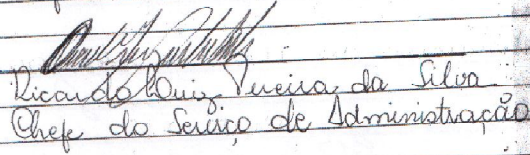 Ricardo Luiz Pereira da Silva
Chefe do Serviço de Administração